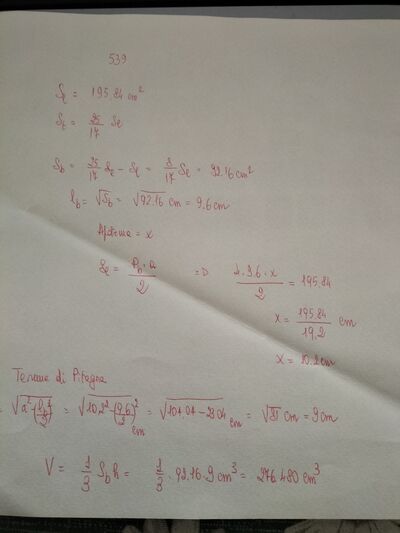 539
Sℓ = 195.84 cm²
St = 25/17 Sℓ
Sb = 25/17 Sℓ - Sℓ = 8/17 Sℓ = 92.16 cm²
ℓb = √Sb = √92.16 cm = 9.6 cm
Apotema = x
Sℓ = Pb · a / 2 => 4 · 9.6 · x / 2 = 195.84
x = 195.84 / 19.2 cm
x = 10.2 cm
Teorema di Pitagora
√a² - (ℓb/2)² = √10.2² - (9.6/2)² cm = √104.04 - 23.04 cm = √81 cm = 9 cm
V = 1/3 Sb h = 1/3 · 92.16 · 9 cm³ = 276.480 cm³